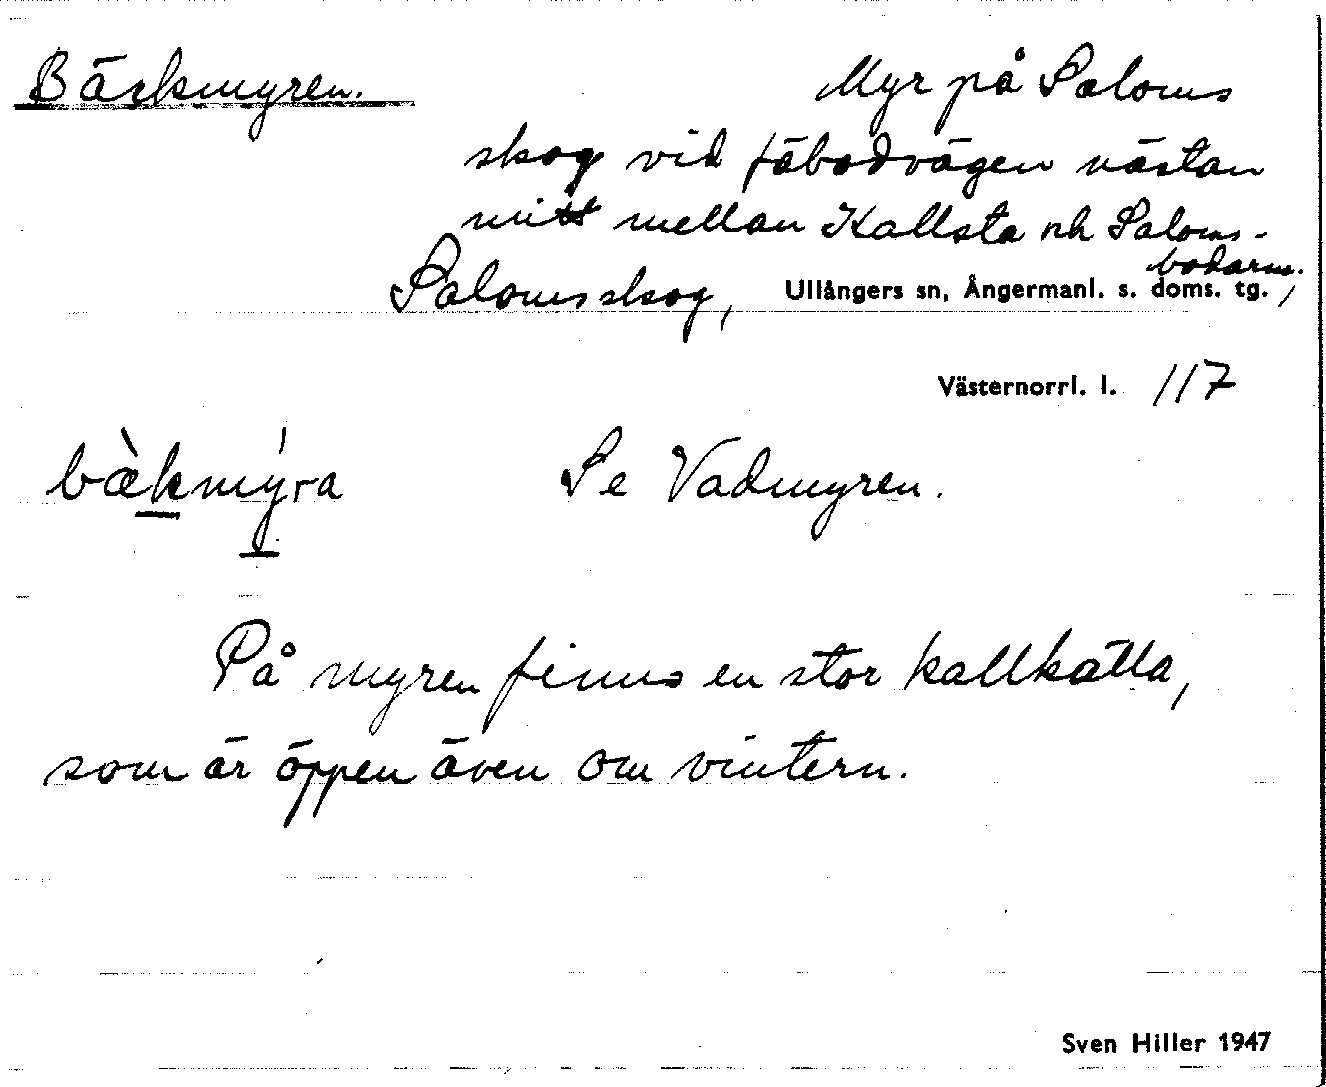 Bäckmyren.
Myr på Saloms
skog vid fäbodvägen nästan
mitt mellan Kallsta och Saloms-
bodarna.
Salomsskog, Ullångers sn, Ångermanl. s. doms. tg.,
Västernorrl. l. 117
bæ̀kmýra Se Vadmyren.
På myren finns en stor kallkälla,
som är öppen även om vintern.
Sven Hiller 1947